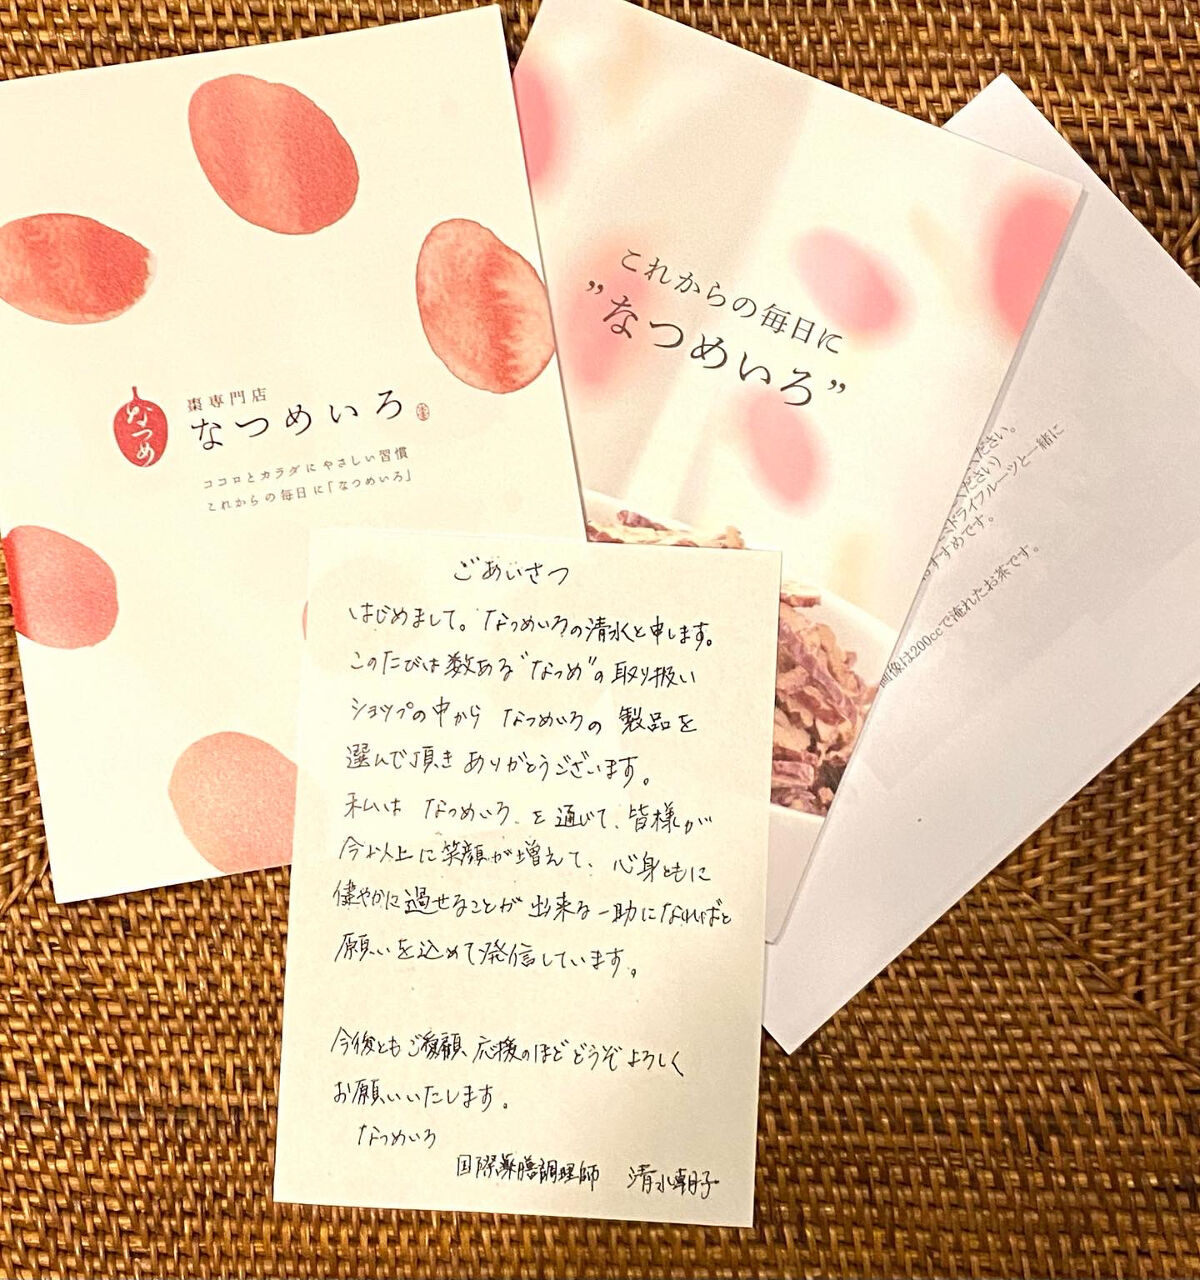 なつめ
棗専門店
なつめいろ
ココロとカラダにやさしい習慣
これからの毎日に「なつめいろ」
これからの毎日に
”なつめいろ”
ください。
ください)
ドライフルーツと一緒に
おすすめです。
画像は200ccで淹れたお茶です。
ごあいさつ
はじめまして。なつめいろの清水と申します。
このたびは数ある"なつめ"の取り扱い
ショップの中から なつめいろの 製品を
選んで頂き ありがとうございます。
私は なつめいろ を通じて、皆様が
今以上に笑顔が増えて、心身ともに
健やかに過せることが 出来る一助になればと
願いを込めて発信しています。
今後ともご愛顧、応援のほど どうぞよろしく
お願いいたします。
なつめいろ
国際薬膳調理師 清水朝子